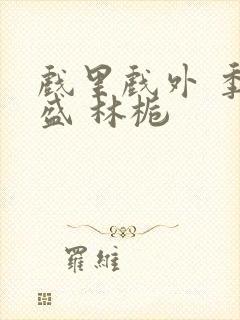 戲里戲外 季
盛 林梔
羅維